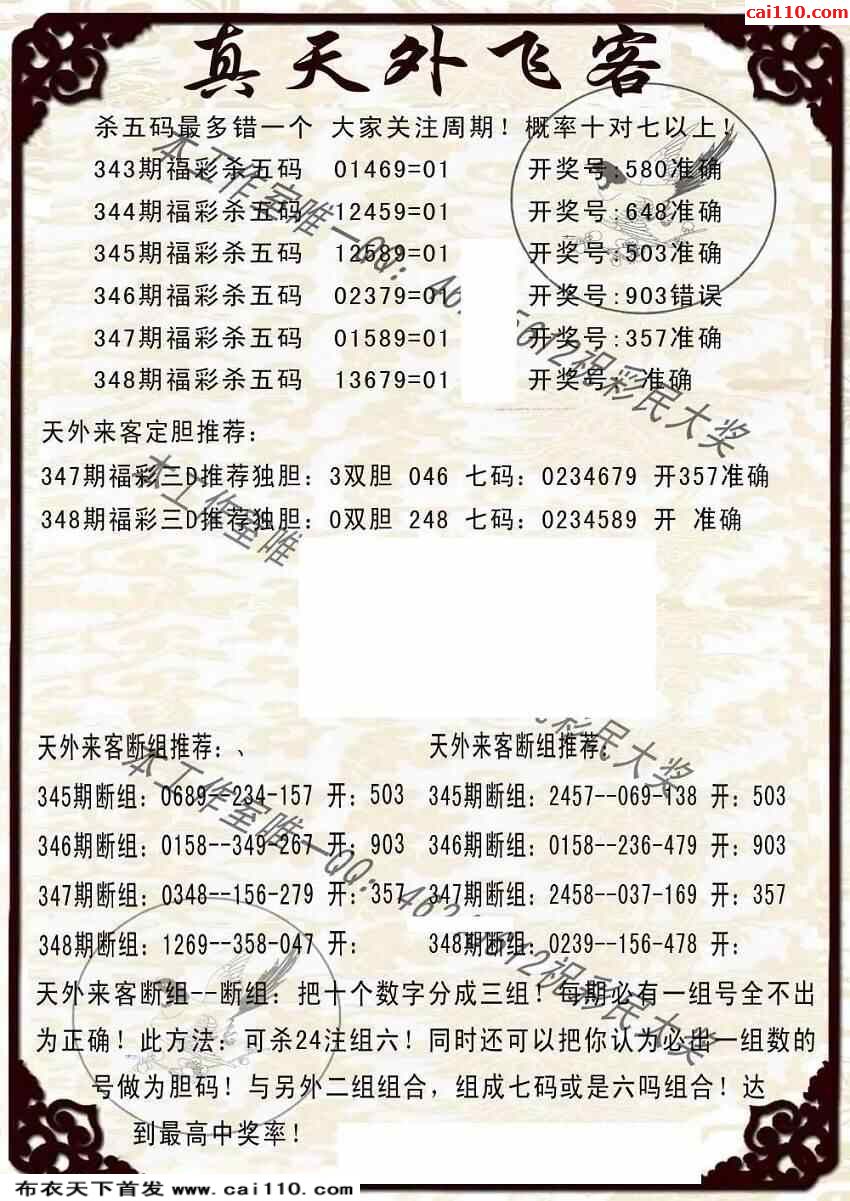 cai110.com
真天外飞客
杀五码最多错一个 大家关注周期！概率十对七以上！
343期福彩杀五码 01469=01 开奖号:580准确
344期福彩杀五码 12459=01 开奖号:648准确
345期福彩杀五码 12589=01 开奖号:503准确
346期福彩杀五码 02379=01 开奖号:903错误
347期福彩杀五码 01589=01 开奖号:357准确
348期福彩杀五码 13679=01 开奖号 准确
天外来客定胆推荐：
347期福彩三D推荐独胆：3双胆 046 七码：0234679 开357准确
348期福彩三D推荐独胆：0双胆 248 七码：0234589 开 准确
天外来客断组推荐：、 天外来客断组推荐：
345期断组：0689--234-157 开：503 345期断组：2457--069-138 开：503
346期断组：0158--349-267 开：903 346期断组：0158--236-479 开：903
347期断组：0348--156-279 开：357 347期断组：2458--037-169 开：357
348期断组：1269--358-047 开： 348期断组：0239--156-478 开：
天外来客断组--断组：把十个数字分成三组！每期必有一组号全不出
为正确！此方法：可杀24注组六！同时还可以把你认为必出一组数的
号做为胆码！与另外二组组合，组成七码或是六吗组合！达
到最高中奖率！
本工作室唯一QQ：
祝彩民大奖
本工作室唯
彩民大奖
本工作室唯一QQ：
祝彩民大奖
布衣天下首发 www.cai110.com